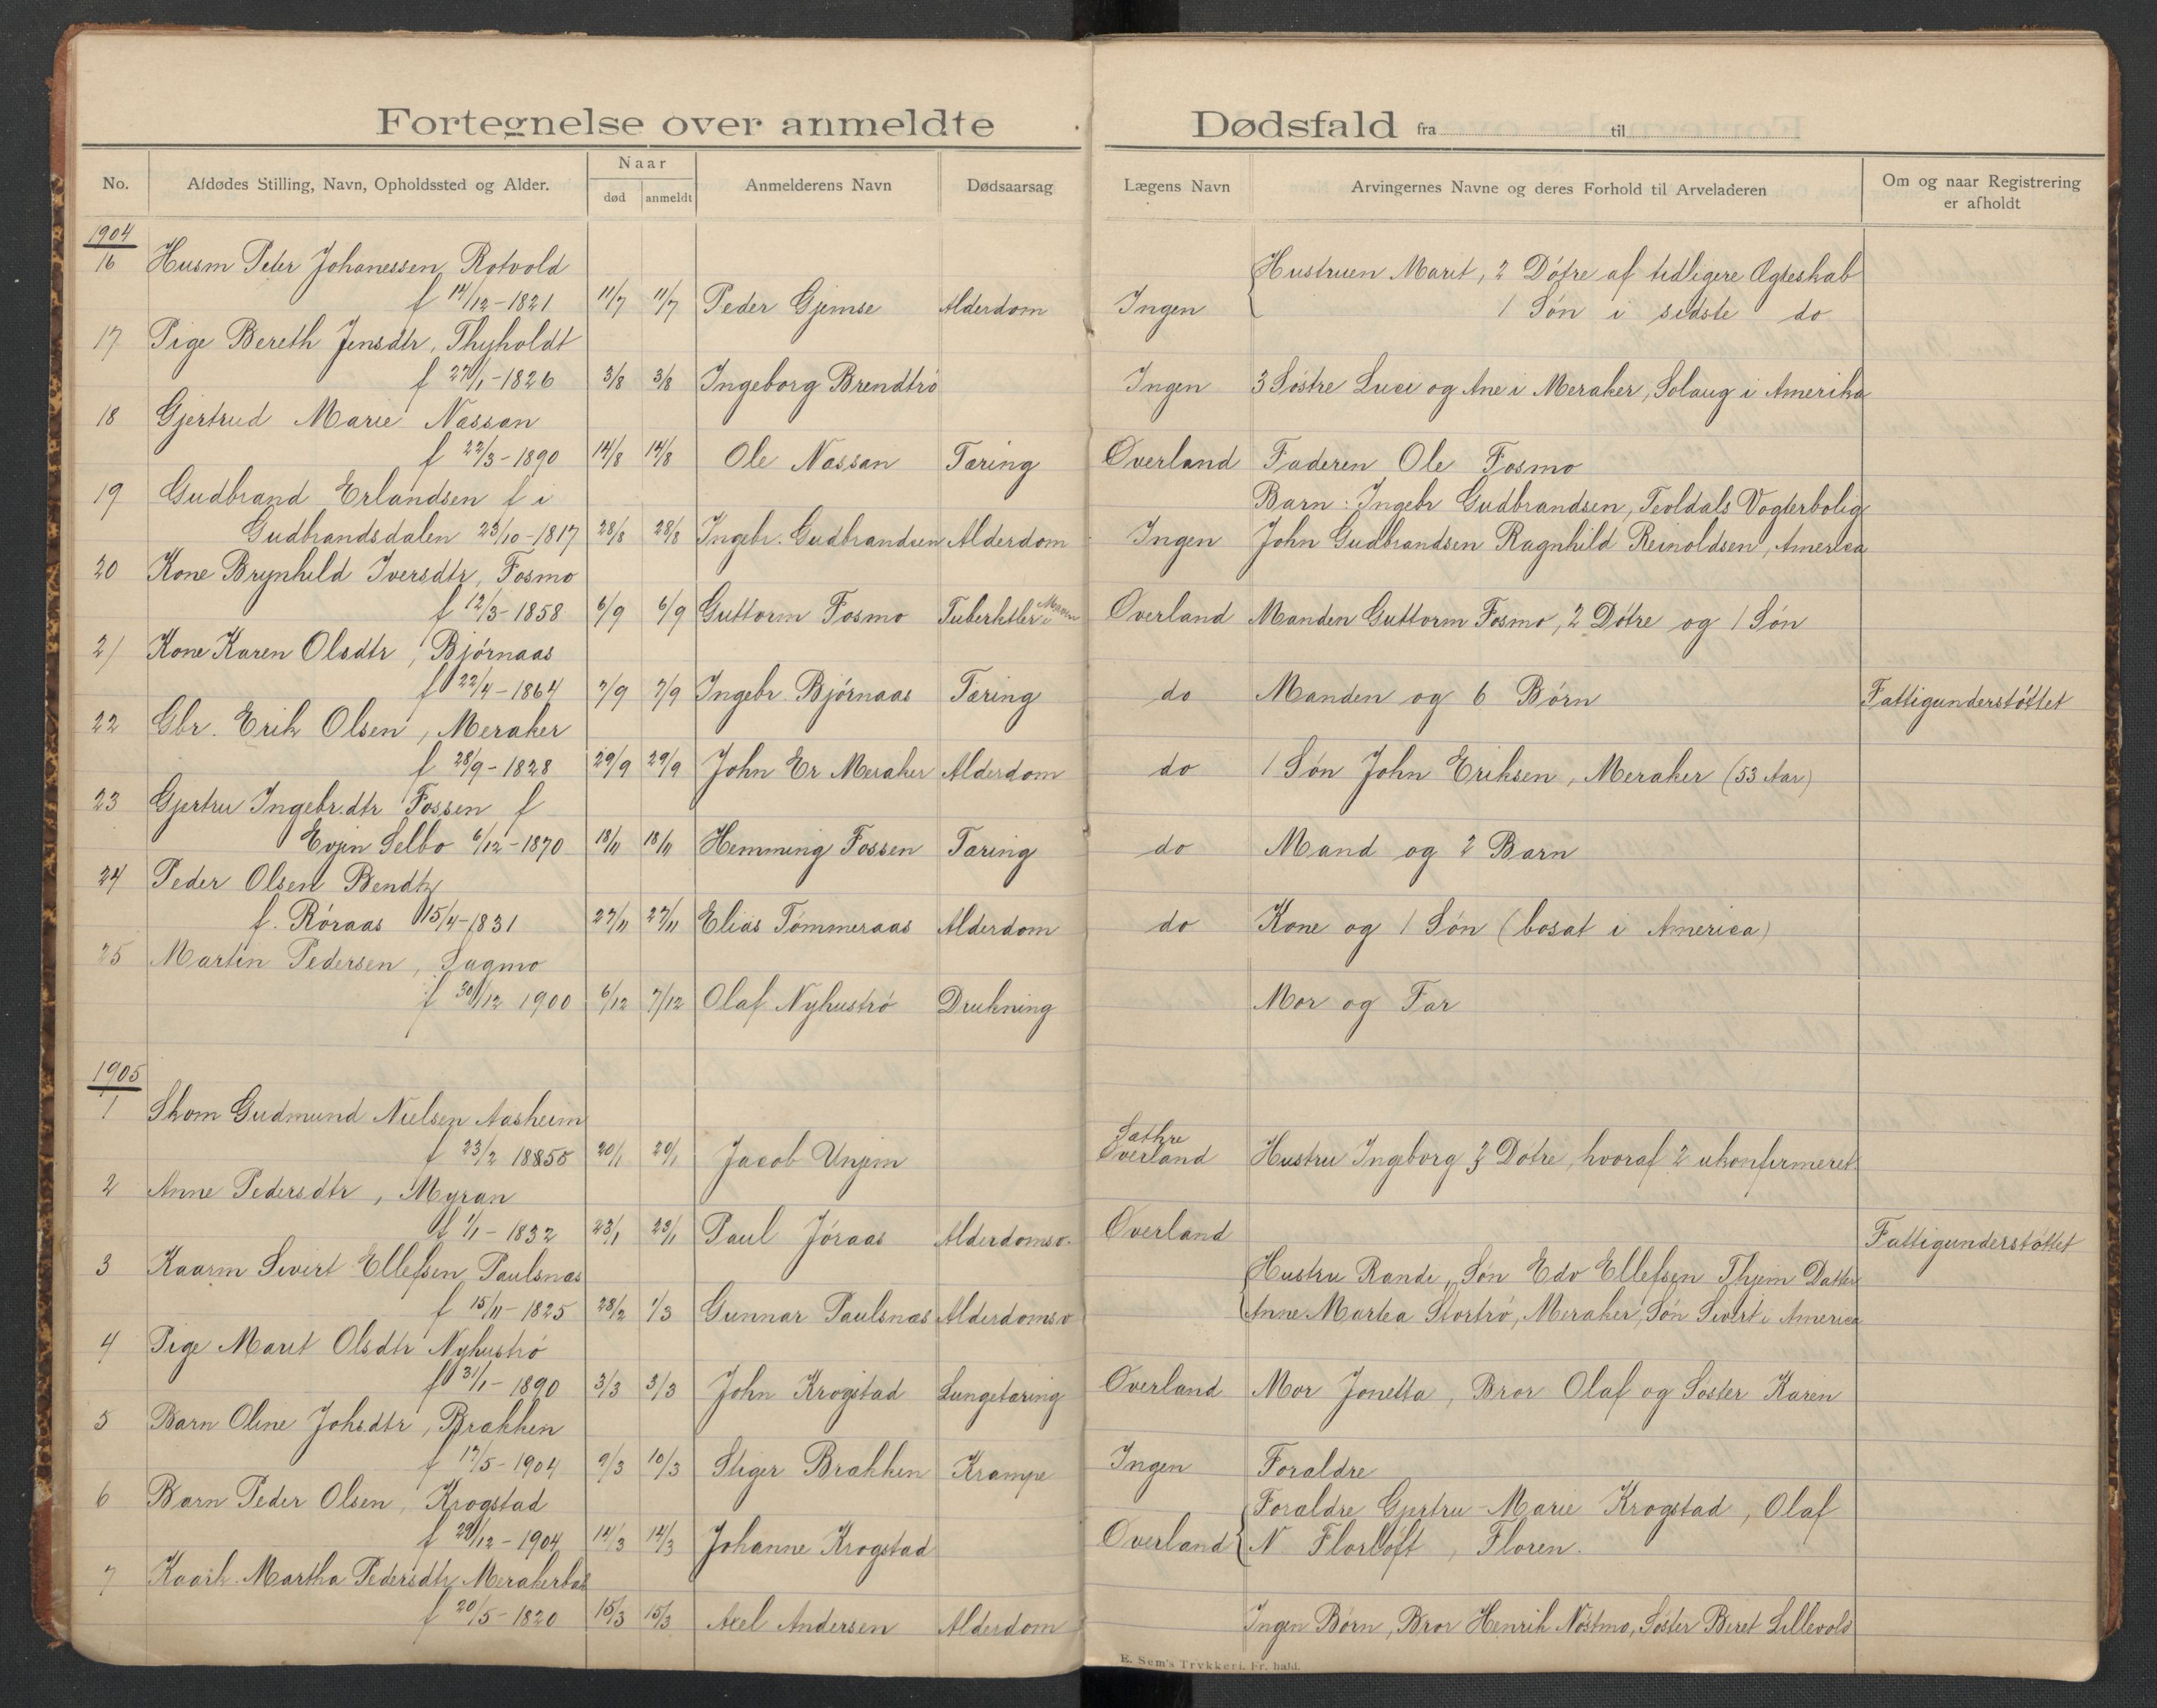 Fortegnelse over anmeldte Dødsfald fra til
No. Afdødes Stilling, Navn, Opholdssted og Alder. Naar død anmeldt Anmelderens Navn Dødsaarsag Lægens Navn Arvingernes Navne og deres Forhold til Arveladeren Om og naar Registrering er afholdt
1904
16 Husm Peter Johanessen Rotvold Hustruen Marit, 2 Døtre af tidligere Ægteskab
f 14/12-1821 11/7 11/7 Peder Gjemse Alderdom Ingen 1 Søn i sidste do
17 Pige Bereth Jensdtr, Thyholdt
f 27/1-1826 3/8 3/8 Ingeborg Brendtrø Ingen 3 Søstre Luci og Ane i Meraker, Solaug i Amerika
18 Gjertrud Marie Næssan
f 22/3-1890 14/8 14/8 Ole Næssan Tæring Overland Faderen Ole Fosmo
19 Gudbrand Erlandsen f i Barn: Ingebr Gudbrandsen, Tevldals Vogterbolig
Gudbrandsdalen 23/10-1817 28/8 28/8 Ingebr. Gudbrandsen Alderdom Ingen John Gudbrandsen Ragnhild Reinoldsen, America
20 Kone Brynhild Iversdtr, Fosmo
f 12/3-1858 6/9 6/9 Guttorm Fosmo Tuberkler i Maven Overland Manden Guttorm Fosmo, 2 Døtre og 1 Søn
21 Kone Karen Olsdtr, Bjørnaas
f 22/4-1864 7/9 7/9 Ingebr. Bjørnaas Tæring do Manden og 6 Børn Fattigunderstøttet
22 Gbr. Erik Olsen, Meraker
f 28/9-1828 29/9 29/9 John Er Meraker Alderdom do 1 Søn John Eriksen, Meraker (53 Aar)
23 Gjertru Ingebr.dtr Fossen f
Evjen Selbo 6/12-1870 18/11 18/11 Hemming Fossen Tæring do Mand og 2 Barn
24 Peder Olsen Bendtz
f. Røraas 15/4-1831 27/11 27/11 Elias Tømmeraas Alderdom do Kone og 1 Søn (bosat i America)
25 Martin Pedersen, Sagmo
f 30/12 1900 6/12 7/12 Olaf Nyhustrø Drukning Mor og Far
1905
1 Skom Gudmund Nielsen Aasheim
f 23/2 20/1 20/1 Jacob Unjem Sæthre Overland Hustru Ingeborg 3 Døtre, hvoraf 2 ukonfirmeret
2 Anne Pedersdtr, Myran
f 1/1-1832 23/1 23/1 Paul Jøraas Alderdomsv. Overland Fattigunderstøttet
3 Kaarm Sivert Ellefsen Paulsnæs Hustru Rande, Søn Edv Ellefsen Thjem Datter
f 15/11-1825 28/2 1/3 Gunnar Paulsnæs Alderdomsv Anne Martea Stortrø, Meraker, Søn Sivert i America
4 Pige Marit Olsdtr Nyhustrø
f 31/1-1890 3/3 3/3 John Krogstad Lungetæring Overland Mor Jonetta, Bror Olaf og Søster Karen
5 Barn Oline Johsdtr, Brækken
f 17/5-1904 9/3 10/3 Stiger Brækken Krampe Ingen Forældre
6 Barn Peder Olsen, Krogstad Forældre Gjertru-Marie Krogstad, Olaf
f 29/12-1904 14/3 14/3 Johanne Krogstad Overland N Florløft, Floren.
7 Kaark. Martha Pedersdtr
f 20/5-1820 15/3 15/3 Axel Andersen Alderdom Ingen Børn, Bror Henrik Nøstmo, Søster Beret Lillevold
E. Sem's Trykkeri. Fr. hald.